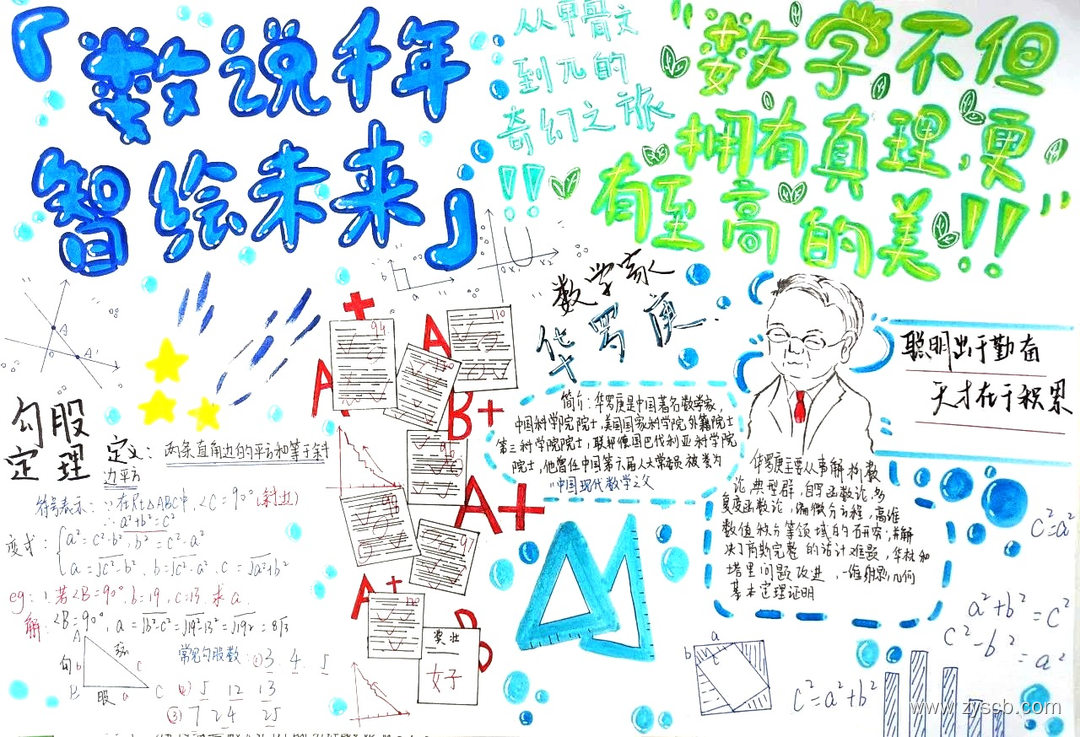 「数说千年
智绘未来」
从甲骨文
到π的
奇幻之旅
!!
"数学不但
拥有真理,更
有至高的美!!"
数学家
华罗庚
聪明出于勤奋
天才在于积累
简介:华罗庚是中国著名数学家,
中国科学院院士,美国国家科学院外籍院士
第三科学院院士,联邦德国巴伐利亚科学院
院士,他曾任中国第六届人大常委,被誉为
中国现代数学之父
华罗庚主要从事解析数
论,典型群,自守函数论,多
复变函数论,偏微分方程,高维
数值积分等领域的研究;并解
决了高斯完整
难题,华林和
塔里问题改进,一维射影几何
基本定理证明
勾股
定理
定义:两条直角边的平方和等于斜
边平方
符号表示:∵在Rt△ABC中,∠C=90°(斜边)
∴a²+b²=c²
变式:
a²=c²-b², b²=c²-a²
a=√c²-b², b=√c²-a², c=√a²+b²
eg:1.若∠B=90°,b=19,c=13,求a.
解:∠B=90°,a=√b²-c²=√19²-13²=√192=8√3
常见勾股数:①3 4 5
②5 12 13
③7 24 25
A
勾b
弦
c
B
股
a
C
A
A'
O
b
a
O
x₁
x₂
94
110
96
97
A+
A
B+
A+
A+
B
奖状
女子
a
b
c
c²=a²+b²
c²=a²
a²+b²=c²
c²-b²=a²
www.zyscb.com